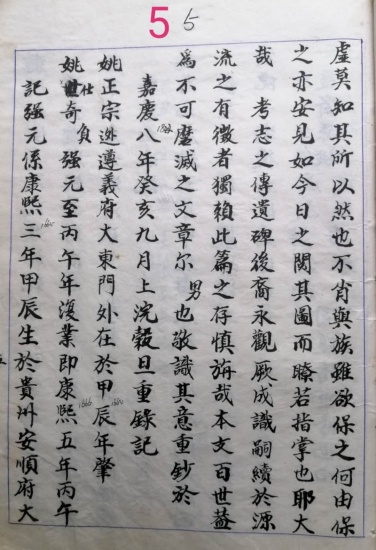 5 5
虛莫知其所以然也不肖與族雖欲保之何由保
之亦安見如今日之閱其圖而瞭若指掌也耶大
哉 考志之傳遺碑後裔永觀厥成識嗣續於源
流之有徵者獨賴此篇之存慎旃哉本支百世益
為不可磨滅之文章尔 男也敬識其意重鈔於
嘉慶八年癸亥九月上浣穀旦一重錄記
姚正宗進遵義府大東門外在於甲辰年肇
姚世奇 仕 負強元至丙午年復業即康熙五年丙午
1666 1664
記強元係康熙三年甲辰生於貴州安順府大